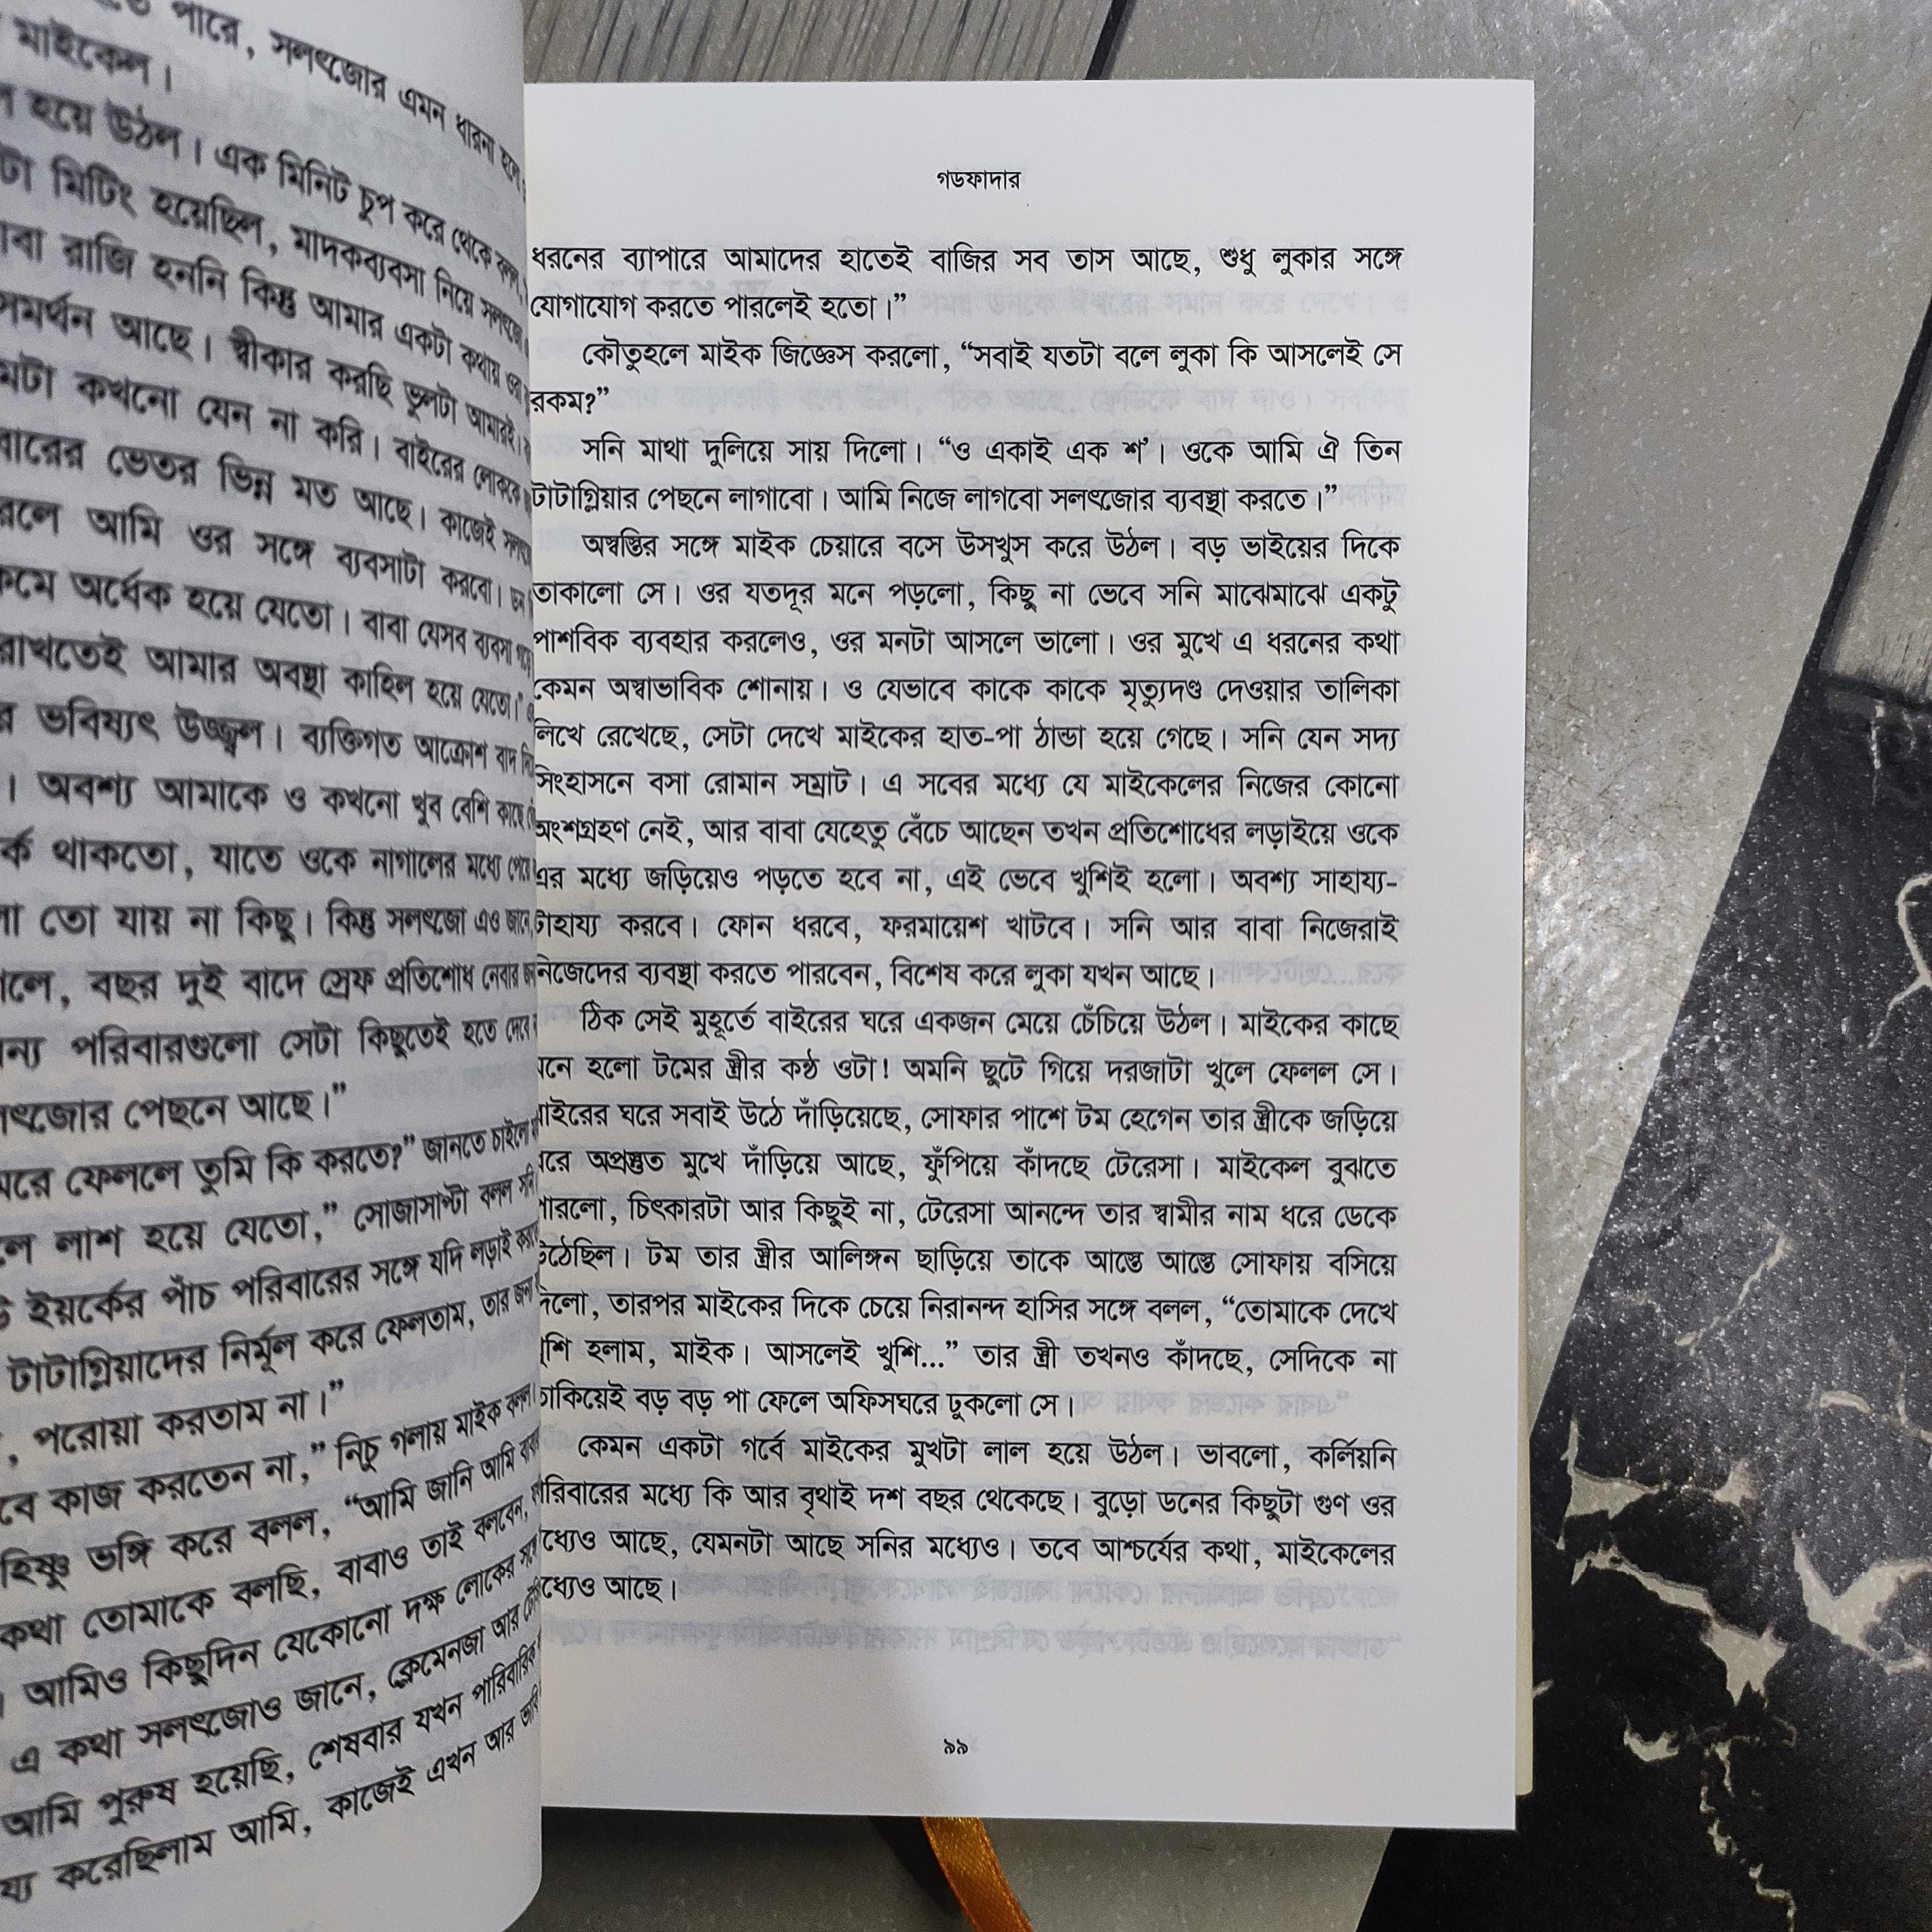 পারে, সলৎজোর এমন ধারনা হলে
মাইকেল।
হয়ে উঠল। এক মিনিট চুপ করে থেকে বলল,
মিটিং হয়েছিল, মাদকব্যবসা নিয়ে
রাজি হননি কিন্তু আমার একটা কথায় ওর
সমর্থন আছে। স্বীকার করছি ভুলটা আমারই।
কখনো যেন না করি। বাইরের লোককে
ভেতর ভিন্ন মত আছে। কাজেই
আমি ওর সঙ্গে ব্যবসাটা করবো।
অর্ধেক হয়ে যেতো। বাবা যেসব ব্যবসা
রাখতেই আমার অবস্থা কাহিল হয়ে যেতো।
ভবিষ্যৎ উজ্জ্বল। ব্যক্তিগত আক্রোশ বাদ
। অবশ্য আমাকে ও কখনো খুব বেশি কাছে
থাকতো, যাতে ওকে নাগালের মধ্যে
তো যায় না কিছু। কিন্তু সলৎজো এও জানে,
বছর দুই বাদে স্রেফ প্রতিশোধ নেবার
পরিবারগুলো সেটা কিছুতেই হতে
পেছনে আছে।”
ফেললে তুমি কি করতে?” জানতে চাইলো
লাশ হয়ে যেতো,” সোজাসাপ্টা বলল
ইয়র্কের পাঁচ পরিবারের সঙ্গে যদি লড়াই
টাটাগ্লিয়াদের নির্মূল করে ফেলতাম, তার
, পরোয়া করতাম না।”
কাজ করতেন না,” নিচু গলায় মাইক বলল।
ভঙ্গি করে বলল, “আমি জানি আমি
কথা তোমাকে বলছি, বাবাও তাই বলবেন,
। আমিও কিছুদিন যেকোনো দক্ষ লোকের
এ কথা সলৎজোও জানে, ক্লেমেনজা আর
আমি পুরুষ হয়েছি, শেষবার যখন পারিবারিক
করেছিলাম আমি, কাজেই এখন আর
গডফাদার
ধরনের ব্যাপারে আমাদের হাতেই বাজির সব তাস আছে, শুধু লুকার সঙ্গে
যোগাযোগ করতে পারলেই হতো।”
কৌতুহলে মাইক জিজ্ঞেস করলো, “সবাই যতটা বলে লুকা কি আসলেই সে
রকম?”
সনি মাথা দুলিয়ে সায় দিলো। “ও একাই এক শ’। ওকে আমি ঐ তিন
টাটাগ্লিয়ার পেছনে লাগাবো। আমি নিজে লাগবো সলৎজোর ব্যবস্থা করতে।”
অস্বস্তির সঙ্গে মাইক চেয়ারে বসে উসখুস করে উঠল। বড় ভাইয়ের দিকে
তাকালো সে। ওর যতদূর মনে পড়লো, কিছু না ভেবে সনি মাঝেমাঝে একটু
পাশবিক ব্যবহার করলেও, ওর মনটা আসলে ভালো। ওর মুখে এ ধরনের কথা
কেমন অস্বাভাবিক শোনায়। ও যেভাবে কাকে কাকে মৃত্যুদণ্ড দেওয়ার তালিকা
লিখে রেখেছে, সেটা দেখে মাইকের হাত-পা ঠান্ডা হয়ে গেছে। সনি যেন সদ্য
সিংহাসনে বসা রোমান সম্রাট। এ সবের মধ্যে যে মাইকেলের নিজের কোনো
অংশগ্রহণ নেই, আর বাবা যেহেতু বেঁচে আছেন তখন প্রতিশোধের লড়াইয়ে ওকে
এর মধ্যে জড়িয়েও পড়তে হবে না, এই ভেবে খুশিই হলো। অবশ্য সাহায্য-
টাহায্য করবে। ফোন ধরবে, ফরমায়েশ খাটবে। সনি আর বাবা নিজেরাই
নিজেদের ব্যবস্থা করতে পারবেন, বিশেষ করে লুকা যখন আছে।
ঠিক সেই মুহূর্তে বাইরের ঘরে একজন মেয়ে চেঁচিয়ে উঠল। মাইকের কাছে
মনে হলো টমের স্ত্রীর কন্ঠ ওটা! অমনি ছুটে গিয়ে দরজাটা খুলে ফেলল সে।
বাইরের ঘরে সবাই উঠে দাঁড়িয়েছে, সোফার পাশে টম হেগেন তার স্ত্রীকে জড়িয়ে
ধরে অপ্রস্তুত মুখে দাঁড়িয়ে আছে, ফুঁপিয়ে কাঁদছে টেরেসা। মাইকেল বুঝতে
পারলো, চিৎকারটা আর কিছুই না, টেরেসা আনন্দে তার স্বামীর নাম ধরে ডেকে
উঠেছিল। টম তার স্ত্রীর আলিঙ্গন ছাড়িয়ে তাকে আস্তে আস্তে সোফায় বসিয়ে
দিলো, তারপর মাইকের দিকে চেয়ে নিরানন্দ হাসির সঙ্গে বলল, “তোমাকে দেখে
খুশি হলাম, মাইক। আসলেই খুশি...” তার স্ত্রী তখনও কাঁদছে, সেদিকে না
তাকিয়েই বড় বড় পা ফেলে অফিসঘরে ঢুকলো সে।
কেমন একটা গর্বে মাইকের মুখটা লাল হয়ে উঠল। ভাবলো, কর্লিয়নি
পরিবারের মধ্যে কি আর বৃথাই দশ বছর থেকেছে। বুড়ো ডনের কিছুটা গুণ ওর
মধ্যেও আছে, যেমনটা আছে সনির মধ্যেও। তবে আশ্চর্যের কথা, মাইকেলের
মধ্যেও আছে।
৯৯